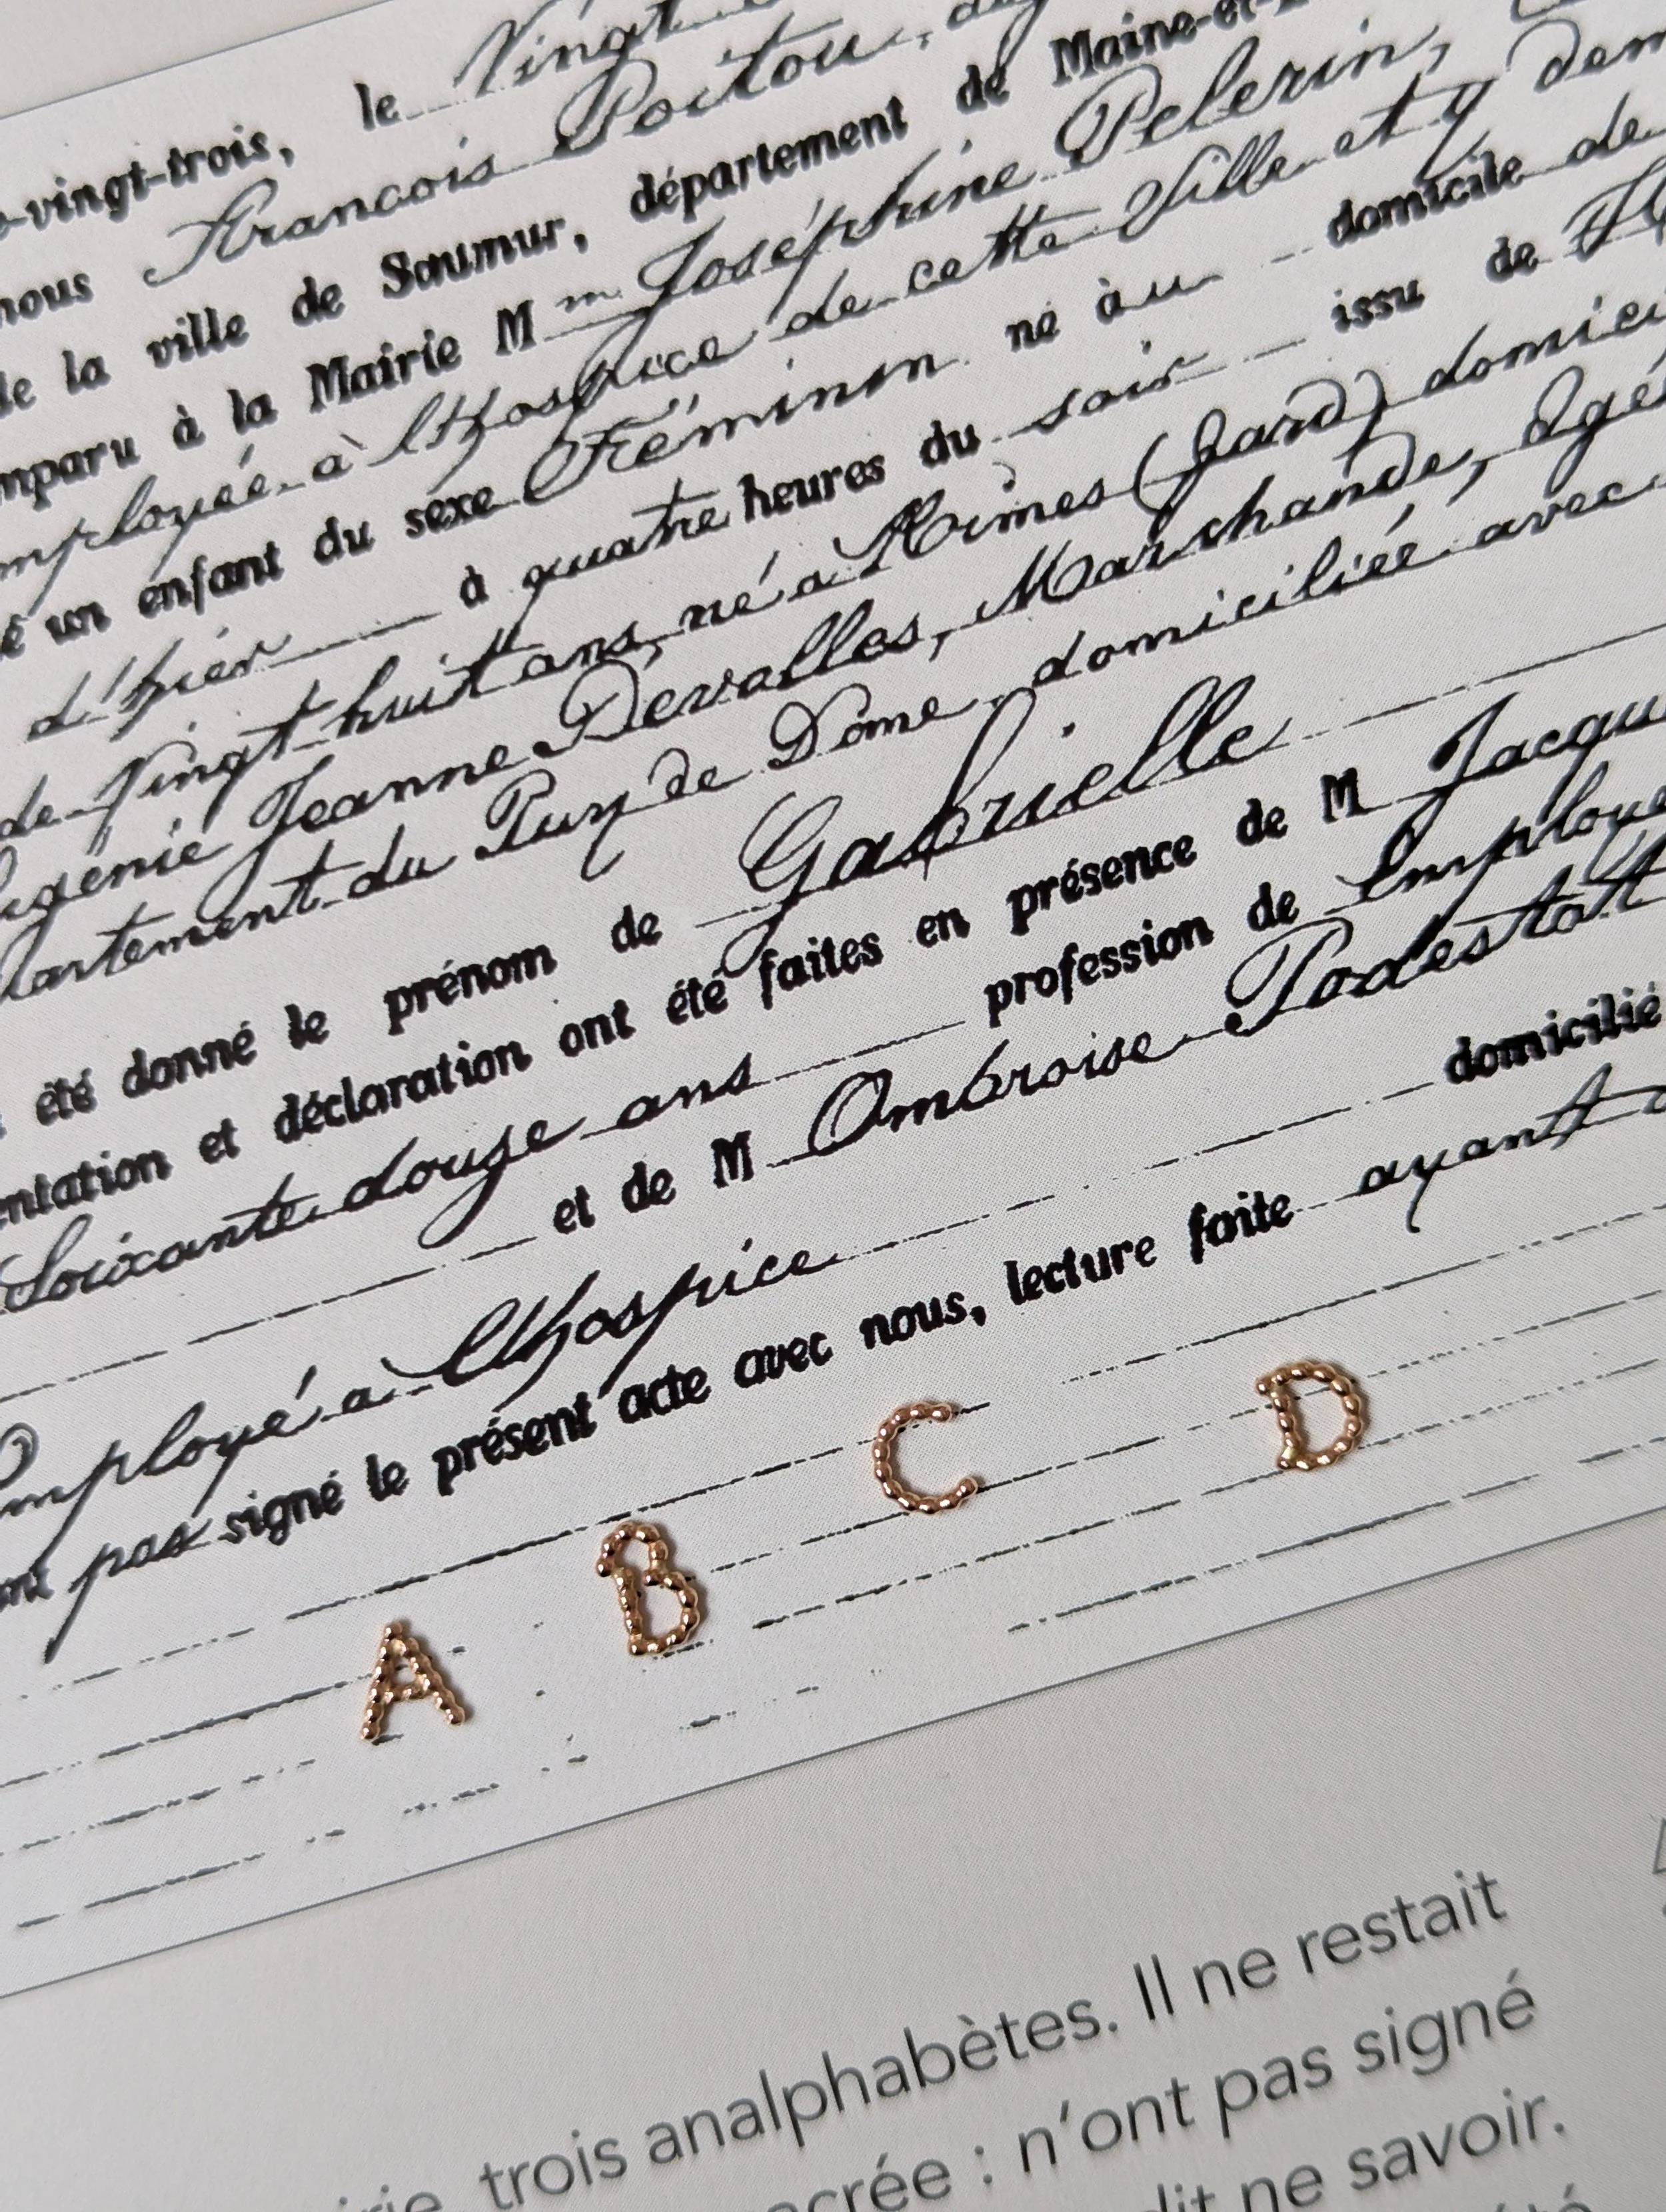 -vingt-trois, le Vingt
nous Francois Poitou,
de la ville de Saumur, département de Maine-et-
mparu à la Mairie M m Joséphine Pelerin,
mployée à l'Hospice de cette Ville et y dem
é un enfant du sexe Féminin né àu domicile de
d'hier à quatre heures du soir issu de
de Vingt-huit ans, né à Nimes (Gard) domici
ugénie Jeanne Devolles, Marchande, Agé
artement du Puy de Dome domiciliéé avec
été donné le prénom de Gabrielle
entation et déclaration ont été faites en présence de M Jacqu
Soixante douze ans profession de Employé
et de M Ombroise Podestat
domicilié
Employé à l'hospice
pas signé le présent acte avec nous, lecture faite ayant
A B C D
trois analphabètes. Il ne restait
acrée : n'ont pas signé
dit ne savoir.